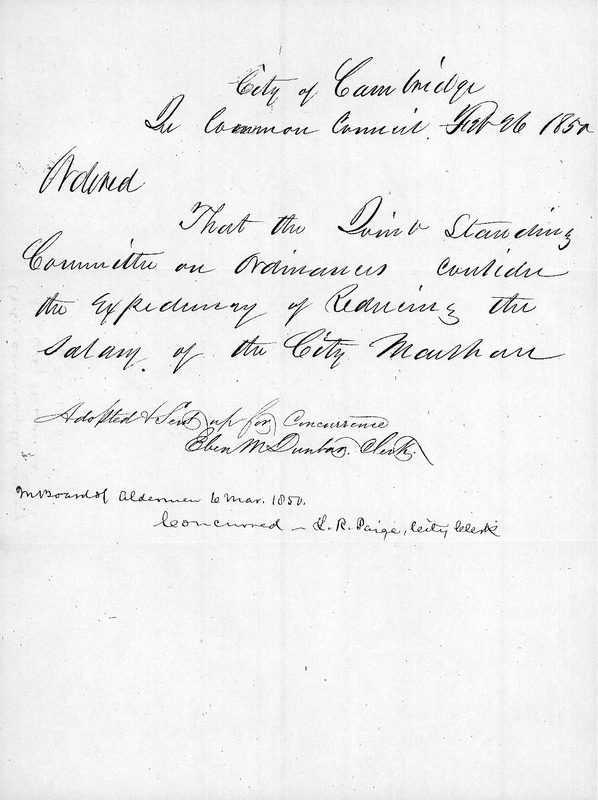 City of Cambridge
In Common Council Feb 26 1850
Ordered
That the Joint Standing
Committee on Ordinances Consider
the Expediency of Reducing the
Salary of the City Marshall
Adopted & Sent up for Concurrence
Eben M Dunbar Clerk.
In Board of Aldermen 6 Mar. 1850.
Concurred – L. R. Paige, City Clerk